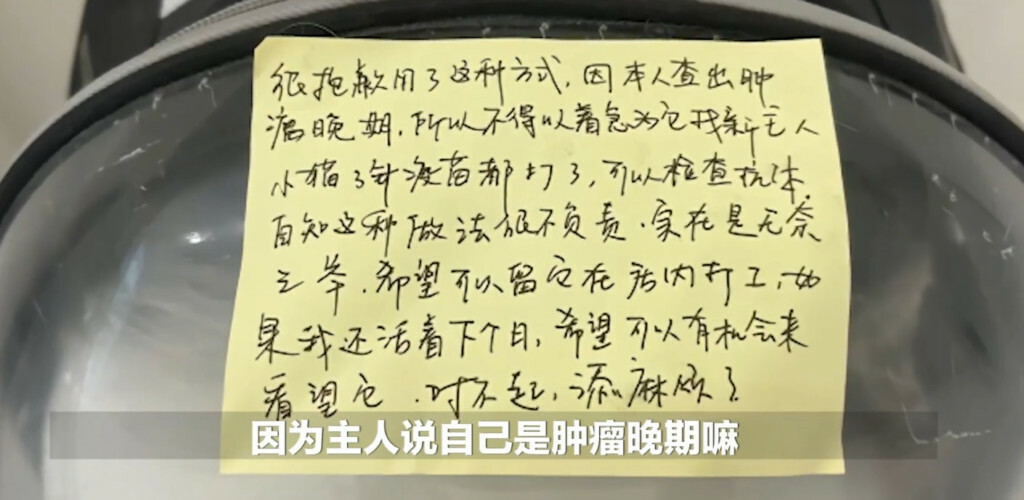 很抱歉用了这种方式，因本人查出肿
瘤晚期，所以不得以着急为它找新主人
小猫3针疫苗都打了，可以检查抗体，
自知这种做法很不负责，实在是无奈
之举，希望可以留它在店内打工，如
果我还活着下个月，希望可以有机会来
看望它，对不起，添麻烦了
因为主人说自己是肿瘤晚期嘛